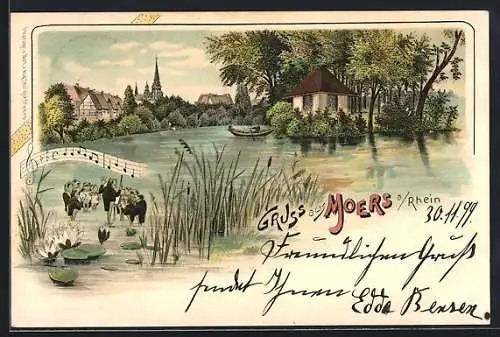 GRUSS aus MOERS a/Rhein
30.11.99.
Freundlichen Gruß
sendet Ihnen Edda Bensen